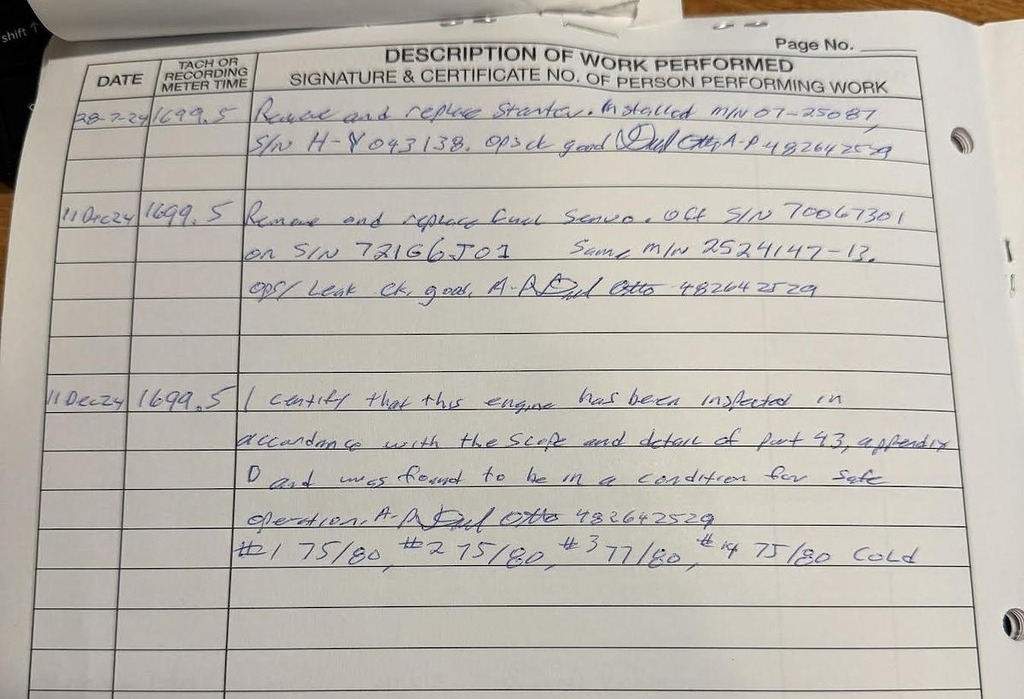 shift ↑
Page No.
DATE
TACH OR RECORDING METER TIME
DESCRIPTION OF WORK PERFORMED
SIGNATURE & CERTIFICATE NO. OF PERSON PERFORMING WORK
28-7-24 1699.5 Remove and replace Starter. Installed M/N 07-25087,
S/N H-Y043138. Ops ck good A-P 482642529
11 Dec 24 1699.5 Remove and replace fuel servo. Off S/N 70067301
on S/N 721G6J01 Same M/N 2524147-13.
ops/ Leak ck. good. A-P Otto 482642529
11 Dec 24 1699.5 I certify that this engine has been inspected in
accordance with the scope and detail of part 43, appendix
D and was found to be in a condition for safe
operation. A-P Otto 482642529
#1 75/80, #2 75/80, #3 77/80, #4 75/80 COLD